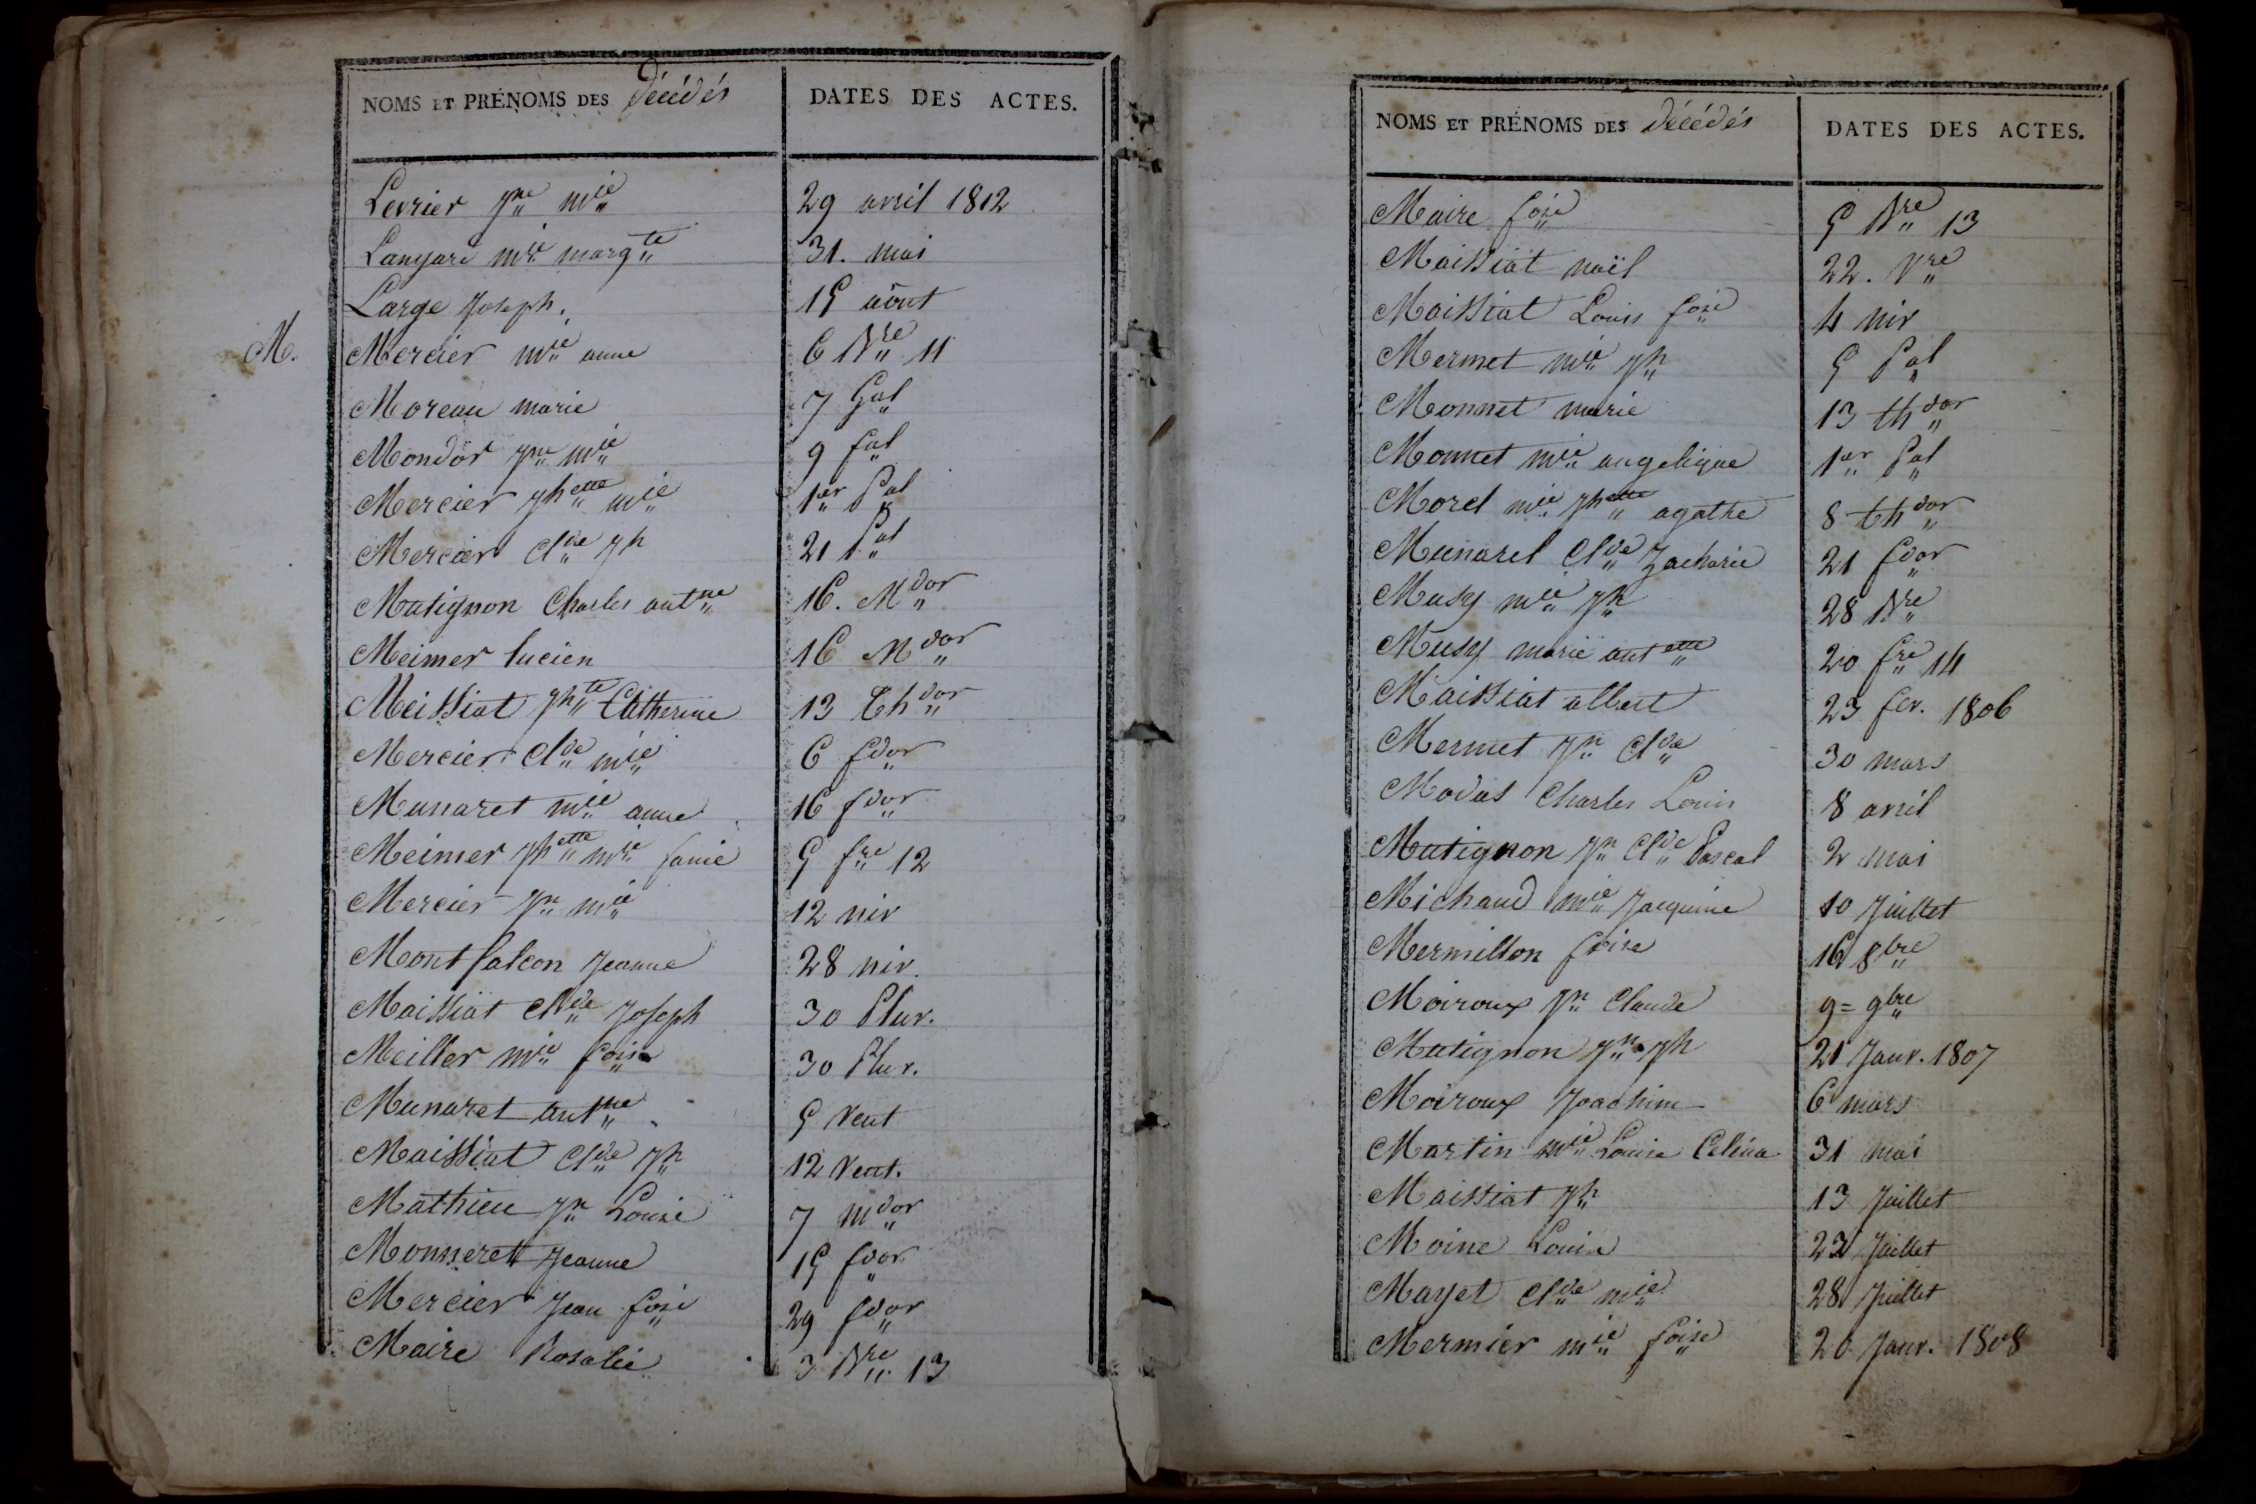 NOMS ET PRÉNOMS DES Décédés DATES DES ACTES.
Levrier Jne mie 29 avril 1812
Lanyare mie margte 31. mai
Large Joseph. 15 aôut
M. Mercier mie anne 6 Bre 11
Moreau marie 7 Gal
Mondor Jne mie 9 fal
Mercier Jhette mie 1er Pal
Mercier Clde Jh 21 Pal
Matignon Charles antne 16. Mdor
Meimer lucien 16 Mdor
Meissiat Jhte Catherine 13 Thdor
Mercier Clde mie 6 fdor
Munaret mie anne 16 fdor
Meimer Jhette mie fanie 5 fre 12
Mercier Jn mie 12 niv
Montfalcon Jeanne 28 niv.
Maissiat Clde Joseph 30 Pluv.
Meiller mie foise 30 Pluv.
Munaret antne 5 Vent
Maissiat Clde Jh 12 Vent.
Mathieu Jn Louise 7 mdor
Monneret Jeanne 15 fdor
Mercier Jean fois 29 fdor
Maire Rosalie 3 Bre 13
NOMS ET PRÉNOMS DES Décédés DATES DES ACTES.
Maire foise 5 Bre 13
Maissiat noël 22. Vre
Maissiat Louis fois 4 niv
Mermet mie Jh 5 Pal
Monnet marie 13 thdor
Monnet mie angelique 1er Pal
Morel mie Jhette agathe 8 thdor
Munarel Clde Zacharie 21 fdor
Musy mie Jh 28 Bre
Musy marie antette 20 fre 14
Maissiat albert 23 fev. 1806
Mermet Jn Clde 30 mars
Modas Charles Louis 8 avril
Matignon Jn Clde Pascal 2 mai
Michaud mie Jacquine 10 Juillet
Mermillon foise 16 8bre
Moiroux Jn Claude 9= 9bre
Matignon Jn Jh 21 Janv. 1807
Moiroux Joachim 6 mars
Martin mie Louise Celina 31 mai
Maissiat Jh 13 Juillet
Moine Louise 23 Juillet
Mayet Clde mie 28 Juillet
Mermier mie foise 20 Janv. 1808